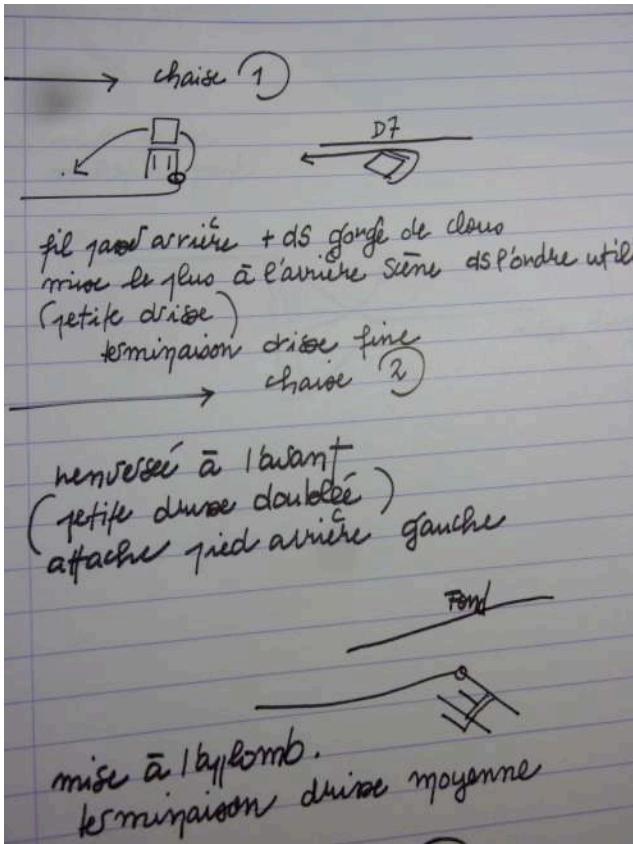 chaise 1
D7
fil passé arrière + ds gorge de clous
mise le plus à l'arrière scène ds l'ordre util
(petite drisse)
terminaison drisse fine
chaise 2
renversée à l'avant
(petite drisse doublée)
attache pied arrière gauche
Fond
mise à l'applomb.
terminaison drisse moyenne